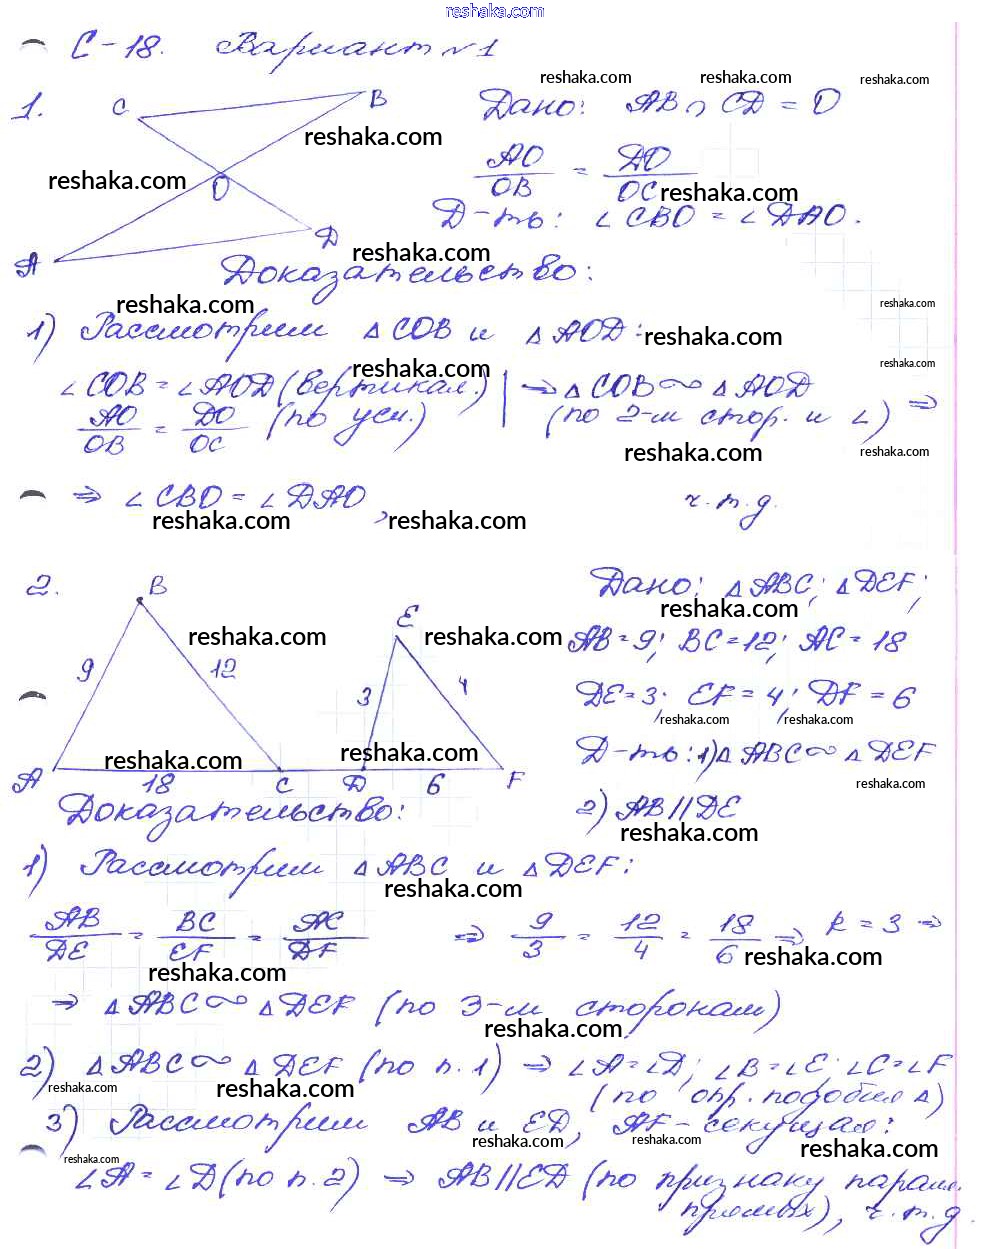 reshaka.com
С-18. Вариант №1
reshaka.com reshaka.com reshaka.com
1. C B Дано: AB ∩ CD = O
reshaka.com
AO/OB = DO/OC
reshaka.com O reshaka.com
Д-ть: ∠CBO = ∠DAO.
A D reshaka.com
Доказательство:
reshaka.com reshaka.com
1) Рассмотрим △COB и △AOD:
reshaka.com
reshaka.com reshaka.com
∠COB = ∠AOD (вертикал.) | ⇒ △COB ∾ △AOD
AO/OB = DO/OC (по усл.) | (по 2-м стор. и ∠) ⇒
reshaka.com reshaka.com
⇒ ∠CBO = ∠DAO, ч.т.д.
reshaka.com reshaka.com
2. B Дано: △ABC; △DEF;
reshaka.com
E
reshaka.com reshaka.com
AB=9; BC=12; AC=18
9 12 3 4
DE=3; EF=4; DF=6
reshaka.com reshaka.com
Д-ть: 1) △ABC ∾ △DEF
reshaka.com reshaka.com
A 18 C D 6 F
reshaka.com
2) AB||DE
reshaka.com
Доказательство:
1) Рассмотрим △ABC и △DEF:
reshaka.com
AB/DE = BC/EF = AC/DF ⇒ 9/3 = 12/4 = 18/6 ⇒ k = 3 ⇒
reshaka.com reshaka.com
⇒ △ABC ∾ △DEF (по 3-м сторонам)
reshaka.com
2) △ABC ∾ △DEF (по п.1) ⇒ ∠A=∠D; ∠B=∠E; ∠C=∠F
reshaka.com reshaka.com
(по опр. подобия △)
3) Рассмотрим AB и ED, AF-секущая:
reshaka.com reshaka.com reshaka.com
reshaka.com
∠A = ∠D (по п.2) ⇒ AB||ED (по признаку паралл.
прямых), ч.т.д.